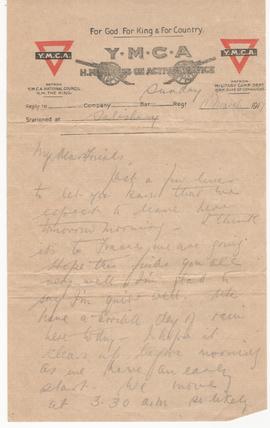 For God. For King & For Country.
Y.M.C.A.
Y.M.C.A
Y.M.C.A.
H.M. FORCES ON ACTIVE SERVICE
PATRON
Y.M.C.A. NATIONAL COUNCIL
H.M. THE KING.
PATRON
MILITARY CAMP DEPT.
H.R.H. DUKE OF CONNAUGHT
Sunday
Reply to Company Bat. Regt March 191
Stationed at Salisbury
My dear Friends
Just a few lines
to let you know that we
expect to leave here
tomorrow morning - I think
it's to France we are going
Hope this finds you all
very well & I'm glad to
say I'm quite well. We
have a day of rain
here today - I hope it
clears up before morning
as we have an early
start. We move
at 3-30 am. So likely